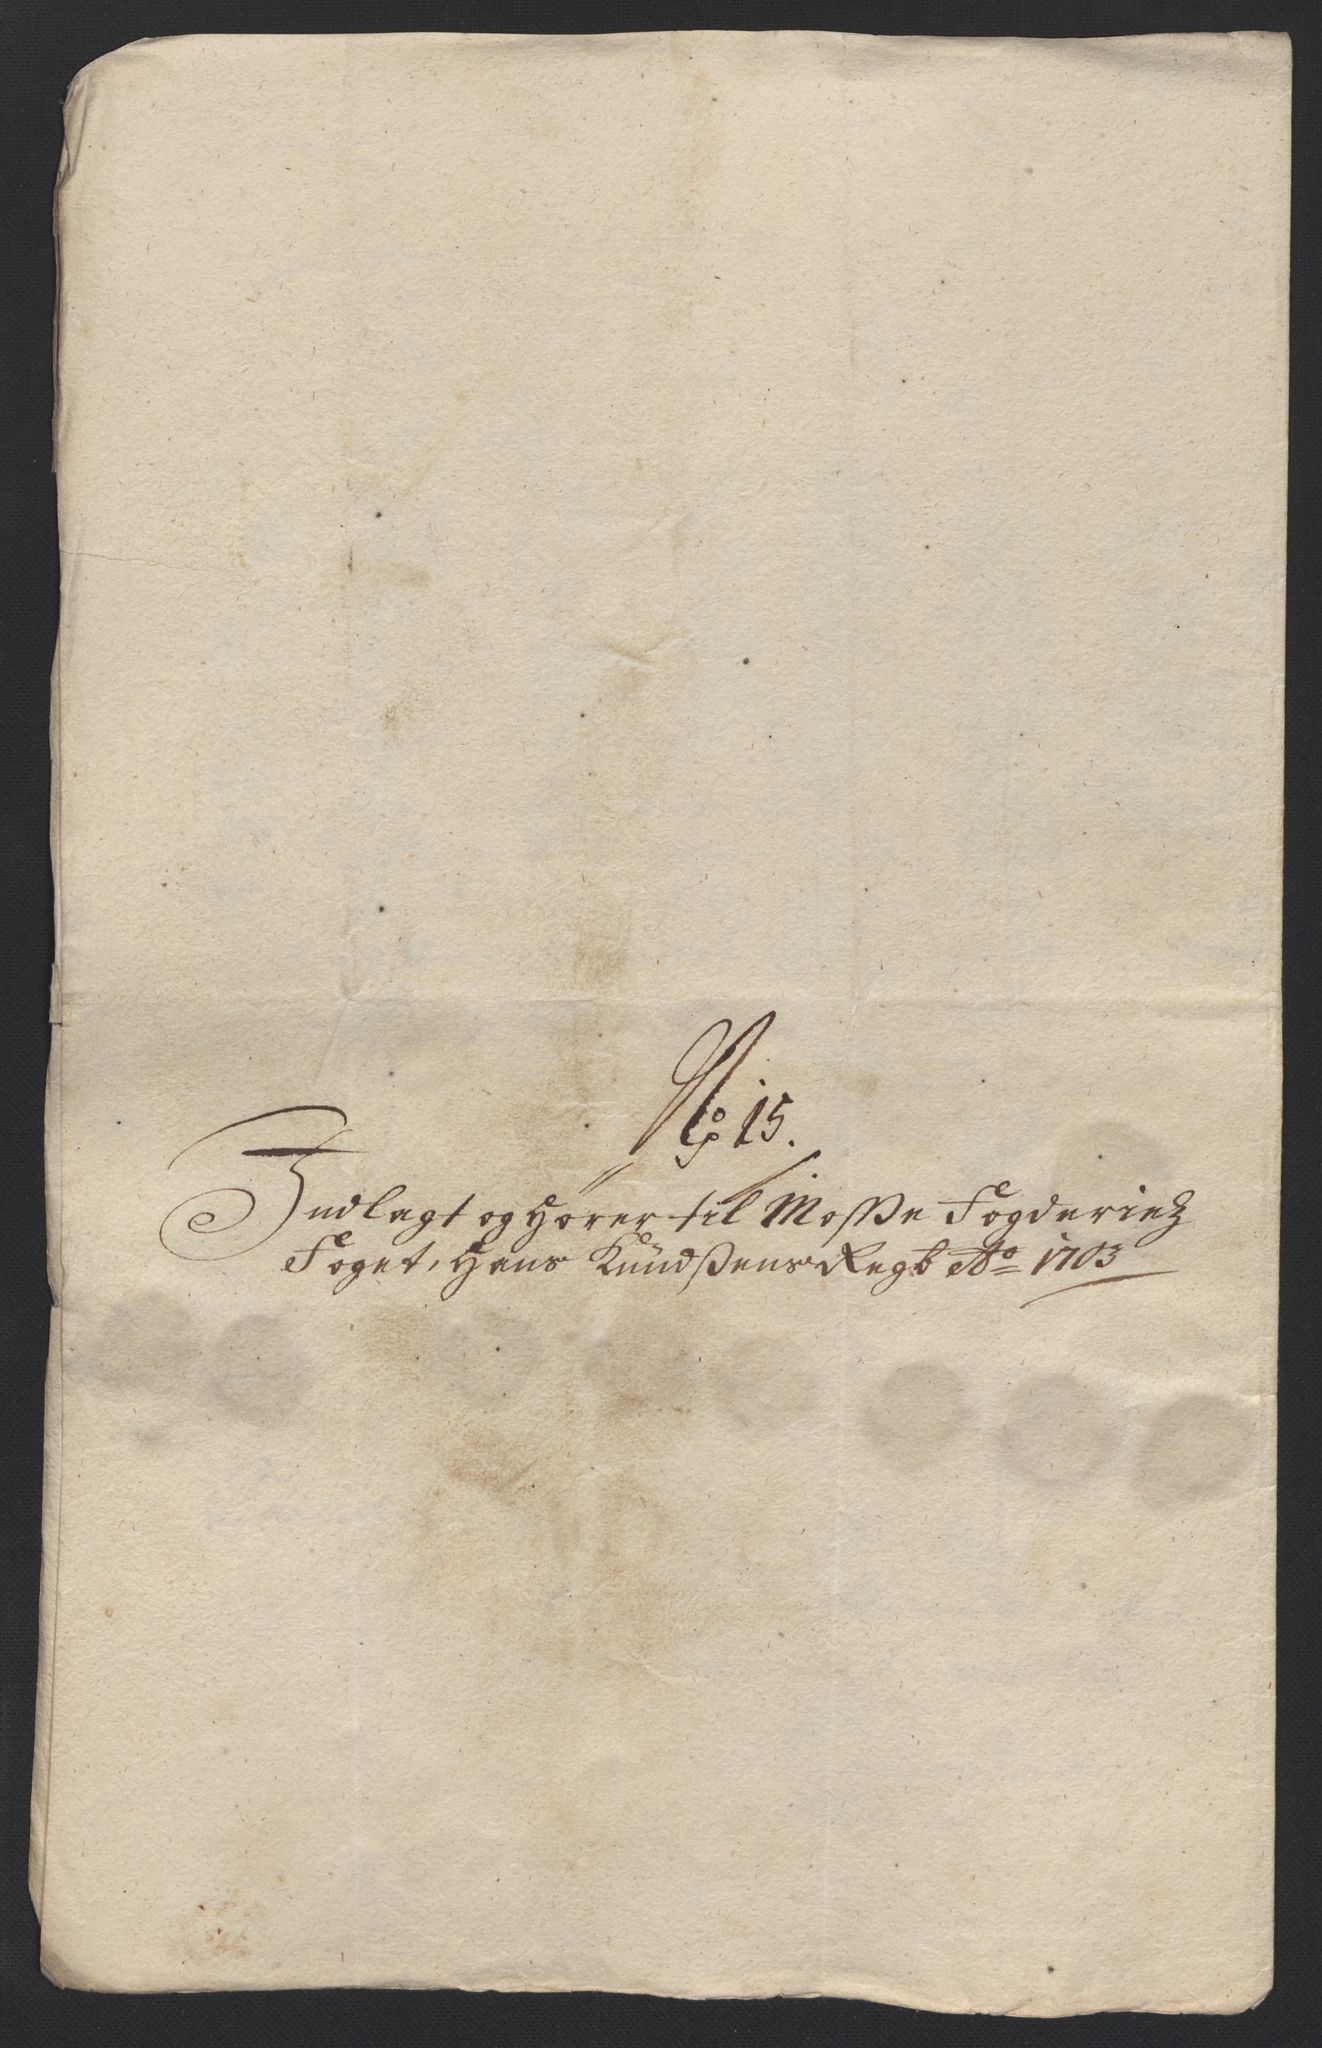 No: 15.
Indlagt og Hører til Mosse Fogderietz
Foget, Hans Knudsens Regb Ao 1703